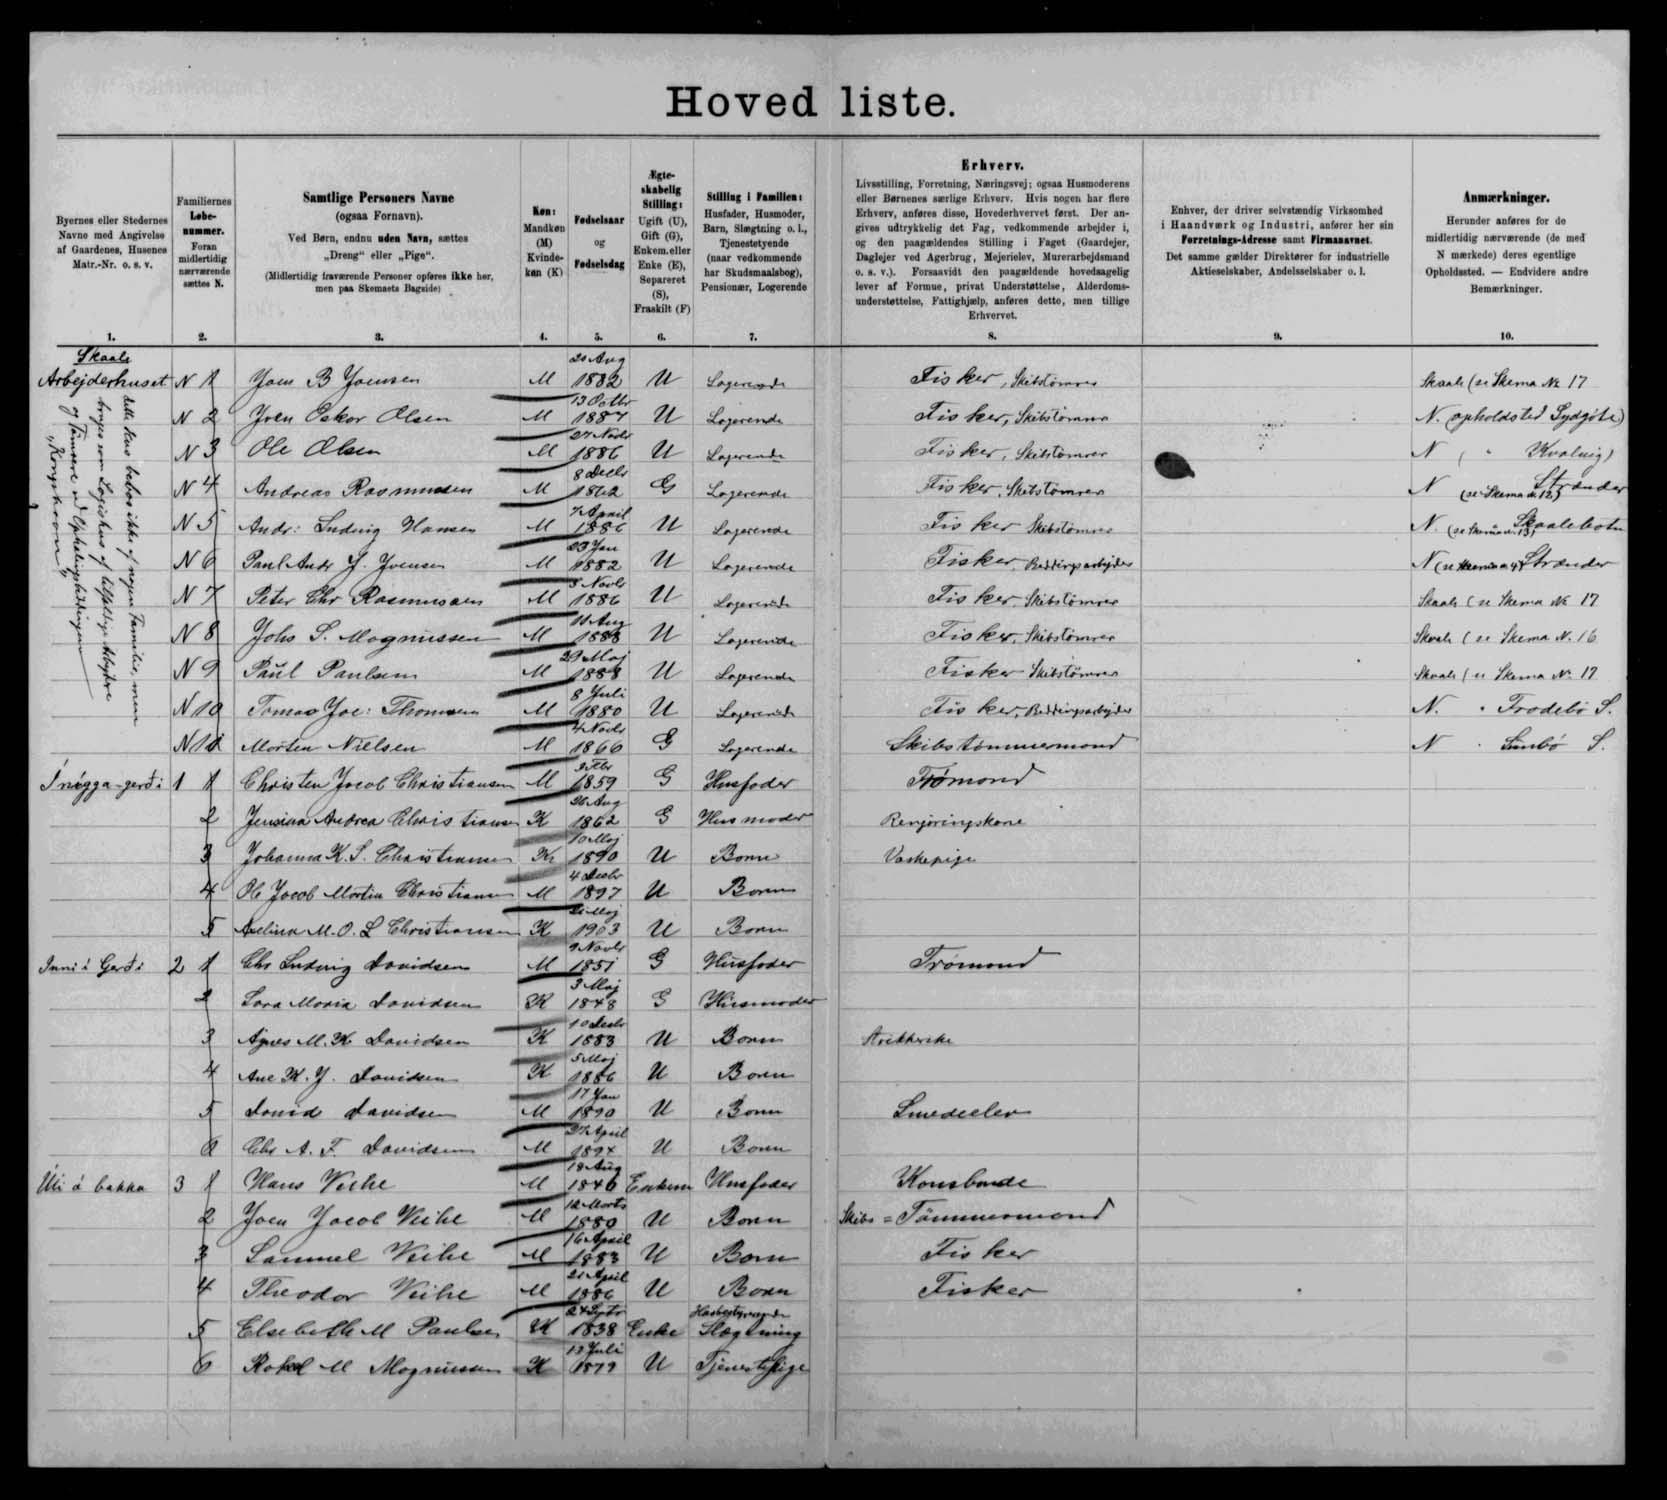 Hoved liste.
Byernes eller Stedernes
Navne med Angivelse
af Gaardenes, Husenes
Matr.-Nr. o. s. v.
Familiernes
Løbe-
nummer.
Foran
midlertidig
nærværende
sættes N.
Samtlige Personers Navne
(ogsaa Fornavn).
Ved Børn, endnu uden Navn, sættes
„Dreng“ eller „Pige“.
(Midlertidig fraværende Personer opføres ikke her,
men paa Skemaets Bagside)
Køn:
Mandkøn
(M)
Kvinde-
køn (K)
Fødselsaar
og
Fødselsdag
Ægte-
skabelig
Stilling:
Ugift (U),
Gift (G),
Enkem. eller
Enke (E),
Separeret
(S),
Fraskilt (F)
Stilling i Familien:
Husfader, Husmoder,
Barn, Slægtning o. l.,
Tjenestetyende
(naar vedkommende
har Skudsmaalsbog),
Pensionær, Logerende
Erhverv.
Livsstilling, Forretning, Næringsvej; ogsaa Husmoderens
eller Børnenes særlige Erhverv. Hvis nogen har flere
Erhverv, anføres disse, Hovederhvervet først. Der an-
gives udtrykkelig det Fag, vedkommende arbejder i,
og den paagældendes Stilling i Faget (Gaardejer,
Daglejer ved Agerbrug, Mejerielev, Murerarbejdsmand
o. s. v.). Forsaavidt den paagældende hovedsagelig
lever af Formue, privat Understøttelse, Alderdoms-
understøttelse, Fattighjælp, anføres dette, men tillige
Erhvervet.
Enhver, der driver selvstændig Virksomhed
i Haandværk og Industri, anfører her sin
Forretnings-Adresse samt Firmanavnet.
Det samme gælder Direktører for industrielle
Aktieselskaber, Andelsselskaber o. l.
Anmærkninger.
Herunder anføres for de
midlertidig nærværende (de med
N mærkede) deres egentlige
Opholdssted. — Endvidere andre
Bemærkninger.
1. 2. 3. 4. 5. 6. 7. 8. 9. 10.
Skaale
dette Hus bebos ikke af nogen Familie, men
bruges som Logishus af tilfældige Arbejdere
og Tømrere ved Ophalingsbeddingen
Arbejderhuset N 1 Joen B Joensen M 20 Aug 1882 U Logerende Fisker, Skibstømrer Skaale (se Skema No 17
N 2 Joen Oskar Olsen M 13 Octbr 1887 U Logerende Fisker, Skibstømrer N. (opholdsted Sydgøte)
N 3 Ole Olsen M 27 Novbr 1886 U Logerende Fisker, Skibstømrer N ( " Kvalvig)
N 4 Andreas Rasmussen M 8 Decbr 1862 G Logerende Fisker, Skibstømrer N (se Skema No 12) Strænder
N 5 Andr: Ludvig Hansen M 7 April 1886 U Logerende Fisker Skibstømrer N. (se Skema No 13) Skaalebotn
N 6 Paul Andr J. Joensen M 23 Jan 1882 U Logerende Fisker, Beddingsarbejder N (se Skema No 4) Strænder
N 7 Peter Chr Rasmussen M 5 Novbr 1886 U Logerende Fisker, Skibstømrer Skaale (se Skema No 17
N 8 Johs S. Magnussen M 10 Aug 1888 U Logerende Fisker, Skibstømrer Skaale (se Skema No. 16
N 9 Paul Paulsen M 29 Maj 1888 U Logerende Fisker Skibstømrer Skaale (se Skema No. 17
N 10 Tomas Joe: Thomsen M 8 Juli 1880 U Logerende Fisker, Beddingsarbejder N. " Frodebø S.
N 11 Morten Nielsen M 4 Novbr 1866 G Logerende Skibstømmermand N " Lambø S.
Í nýgga-gerði 1 1 Christen Jacob Christiansen M 3 Febr 1859 G Husfader Trømand
2 Jensina Andrea Christiansen K 26 Aug 1862 G Husmoder Rengøringskone
3 Johanna K. S. Christiansen K 10 Maj 1890 U Barn Vaskepige
4 Ole Jacob Martin Christiansen M 4 Decbr 1897 U Barn
5 Axelina M. O. L Christiansen K 21 Maj 1903 U Barn
Inni í Gerði 2 1 Chr Ludvig Davidsen M 9 Novbr 1851 G Husfader Trømand
2 Sara Maria Davidsen K 3 Maj 1848 G Husmoder
3 Agnes M. K Davidsen K 10 Decbr 1883 U Barn Strikkerske
4 Ane K. J. Davidsen K 5 Maj 1886 U Barn
5 David Davidsen M 17 Jan 1890 U Barn Smedeelev
6 Chr A. F. Davidsen M 27 April 1894 U Barn
Úti á bakka 3 1 Hans Weihe M 18 Aug 1846 Enkem Husfader Konsbonde
2 Joen Jacob Weihe M 12 Marts 1880 U Barn Skibs=Tømmermand
3 Samuel Weihe M 16 April 1883 U Barn Fisker
4 Theodor Weihe M 21 April 1886 U Barn Fisker
5 Elsebeth M Paulsen K 24 Septr 1838 Enke Husbestyrerinde Slægtning
6 Rakel M Magnussen K 12 Juli 1879 U Tjenestepige